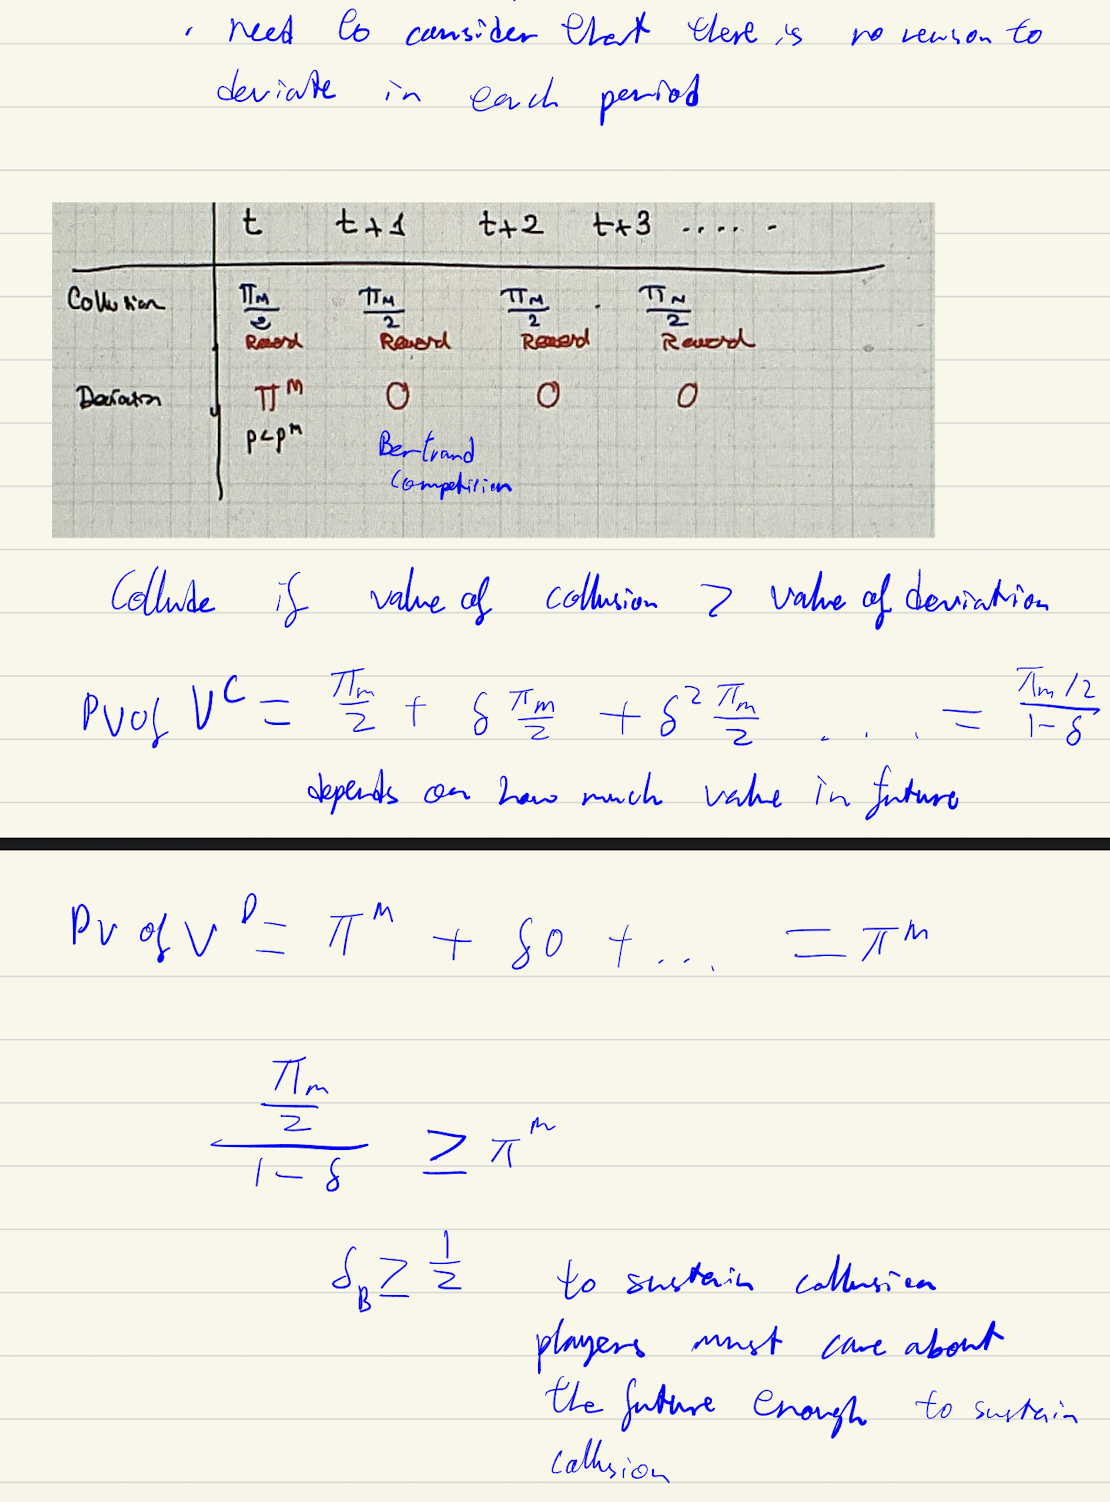 · need to consider that there is no reason to
deviate in each period
t t+1 t+2 t+3 .... -
Collusion πM/2 πM/2 πM/2 πM/2
Reward Reward Reward Reward
Deviation πᴹ 0 0 0
p<pᵐ Bertrand
Competition
Collude if value of collusion > value of deviation
PV of V^C = πm/2 + δ πm/2 + δ² πm/2 . . . . = (πm/2)/(1-δ)
depends on how much value in future
PV of V^D = π^M + δ0 + ... = π^M
(πm/2)/(1-δ) ≥ π^m
δ_B ≥ 1/2 to sustain collusion
players must care about
the future enough to sustain
collusion